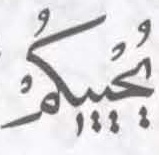 يُحْيِيكُمْ